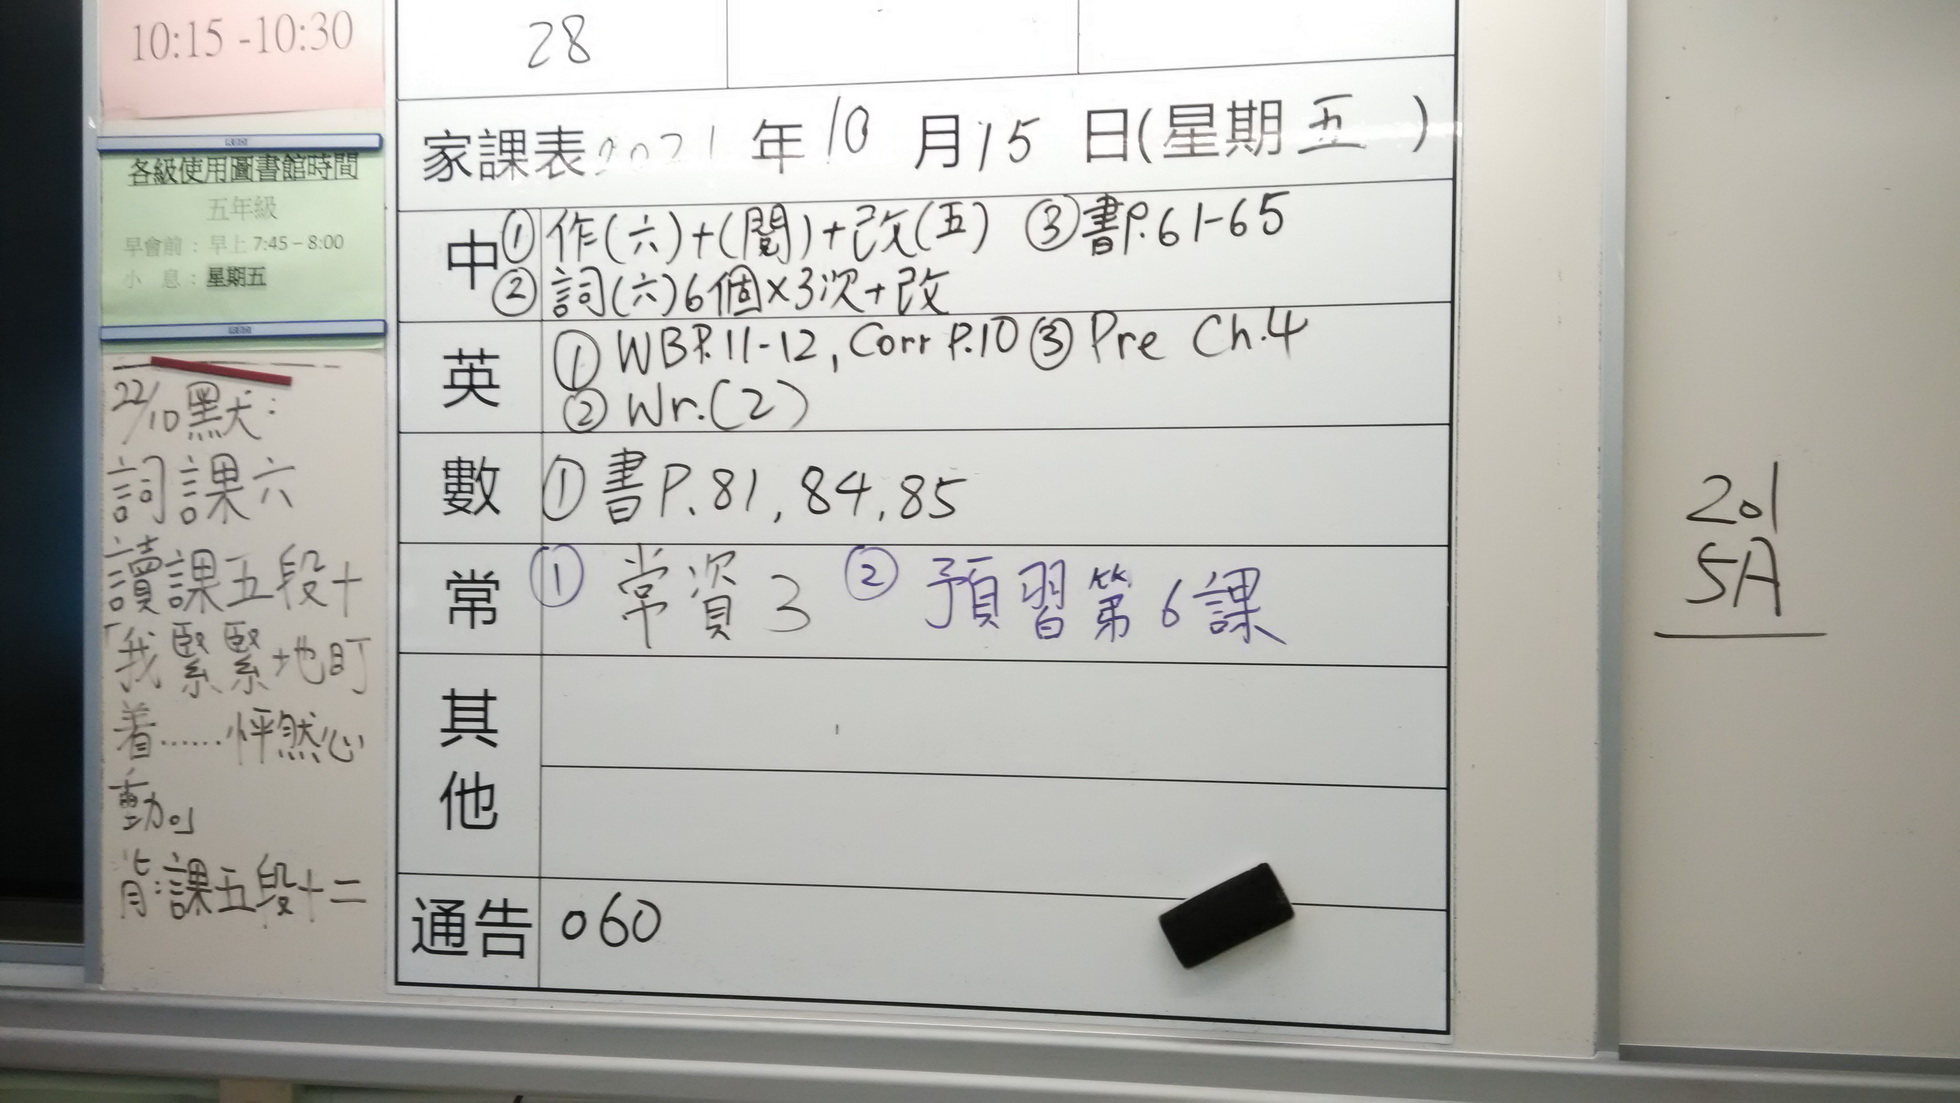 10:15 -10:30
各級使用圖書館時間
五年級
早會前：早上 7:45 – 8:00
小 息：星期五
22/10默：
詞課六
讀課五段十
「我緊緊地盯
着……怦然心
動。」
背:課五段十二
28
家課表 2021 年 10 月 15 日(星期 五 )
中 ① 作(六)+(閱)+改(五) ③ 書P.61-65
② 詞(六)6個×3次+改
英 ① WB P.11-12, Corr P.10 ③ Pre Ch.4
② Wr.(2)
數 ① 書P.81, 84, 85
常 ① 常資3 ② 預習第6課
其他
通告 060
201
5A